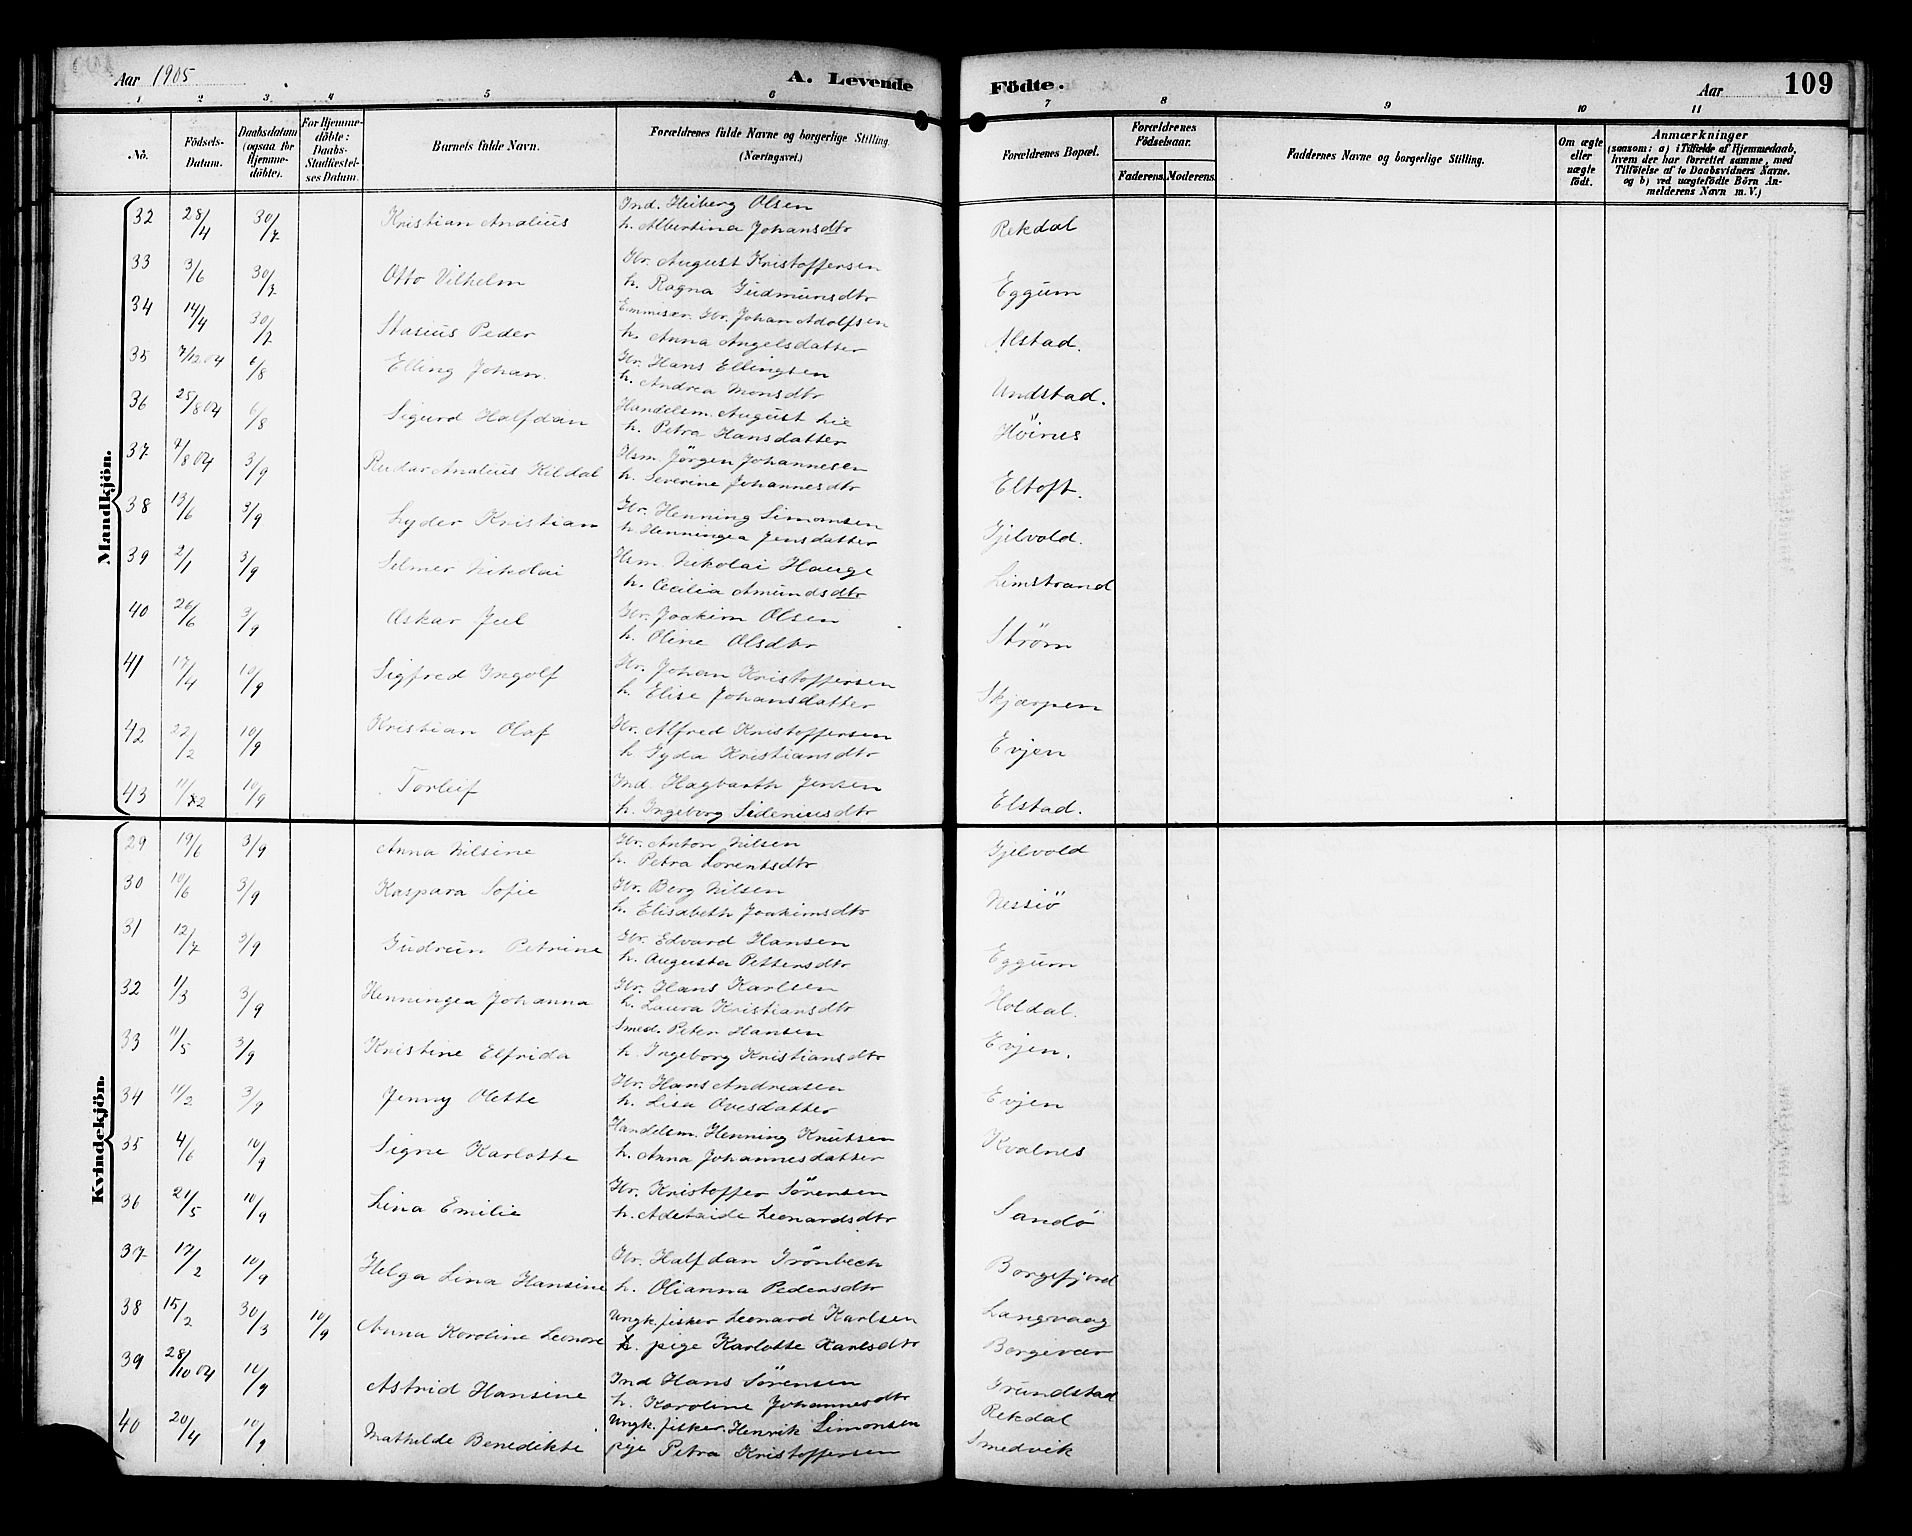 Aar 1905 A. Levende Födte. Aar 109
1 2 3. 4 5 6 7 8 9 10 11
No. Födsels-Datum. Daabsdatum (ogsaa for Hjemme-döbte). For Hjemme-döbte: Daabs-Stadfæstel-ses Datum. Barnets fulde Navn. Forældrenes fulde Navne og borgerlige Stilling. (Næringsvei.) Forældrenes Bopæl. Forældrenes Födselsaar. Faderens. Moderens. Faddernes Navne og borgerlige Stilling. Om ægte eller uægte födt. Anmærkninger (saasom: a) i Tilfælde af Hjemmedaab, hvem der har forrettet samme, med Tilföielse af to Daabsvidners Navne. og b) ved uægtefödte Börn An-melderens Navn m. V.)
Mandkjön.
32 28/4 30/7 Kristian Analius Ind. Heiberg Olsen
h. Albertina Johansdtr Rekdal
33 3/6 30/7 Otto Vilhelm Gbr. August Kristoffersen
h. Ragna Gudmunsdtr Eggum
34 14/4 30/7 Stasius Peder Emmisær Gbr. Johan Adolfsen
h. Anna Angelsdatter Alstad.
35 7/12 04 6/8 Elling Johan. Gbr. Hans Ellingsen
h. Andrea Monsdtr Undstad.
36 25/8 04 6/8 Sigurd Halfdan Handelsm. August Lie
h. Petra Hansdatter Höines
37 9/8 04 3/9 Rudar Analius Kildal Hsm. Jörgen Johannesen
h. Severine Johannesdtr Eltoft.
38 13/6 3/9 Lyder Kristian Gbr. Henning Simonsen
h. Henningea Jensdatter Gjelvold.
39 2/1 3/9 Selmer Nikolai Hsm. Nikolai Hauge
h. Cecilia Amundsdtr Limstrand
40 26/6 3/9 Oskar Juel Gbr. Joakim Olsen
h. Oline Olsdtr Strøm
41 17/4 10/9 Sigfred Ingolf Gbr. Johan Kristoffersen
h. Elise Johansdatter Skjærpen
42 22/2 10/9 Kristian Olaf Gbr. Alfred Kristoffersen
h. Gyda Kristiansdtr Evjen
43 11/2 10/9 Torleif Ind. Hagbarth Jensen
h. Ingeborg Sideniusdtr Elstad.
Kvindekjön.
29 19/6 3/9 Anna Nilsine Gbr. Anton Nilsen
h. Petra Lorentsdtr Gjelvold
30 10/6 3/9 Kaspara Sofie Gbr. Berg Nilsen
h. Elisabeth Joakimsdtr Nessiö
31 12/7 3/9 Gudrun Petrine Gbr. Edvard Hansen
h. Augusta Pettersdtr Eggum
32 11/3 3/9 Henningea Johanna Gbr. Hans Karlsen
h. Laura Kristiansdtr Holdal.
33 11/5 3/9 Kristine Elfrida Smed. Peter Hansen
h. Ingeborg Kristiansdtr Evjen.
34 11/2 3/9 Jenny Olette Gbr. Hans Andreasen
h. Lisa Ovesdatter Evjen
35 4/6 10/9 Signe Karlotte Handelsm. Henning Knutsen
h. Anna Johannesdatter Kvalnes
36 21/5 10/9 Lina Emilie Gbr. Kristoffer Sørensen
h. Adelaide Leonardsdtr Sandö
37 17/2 10/9 Helga Lina Hansine Gbr. Halfdan Trönbech
h. Olianna Pedersdtr Borgefjord
38 15/2 30/3 10/9 Anna Karoline Leonore Ungk. fisker Leonard Karlsen Langvaag
pige Karlotte Karlsdtr Borgevær
39 28/10 04 11/9 Astrid Hansine Ind Hans Sørensen
h. Karoline Johannesdtr Grundstad
40 20/4 10/9 Mathilde Benedikte Ungk. fisker. Henrik Simonsen Rekdal
pige Petra Kristoffersen Smedvik